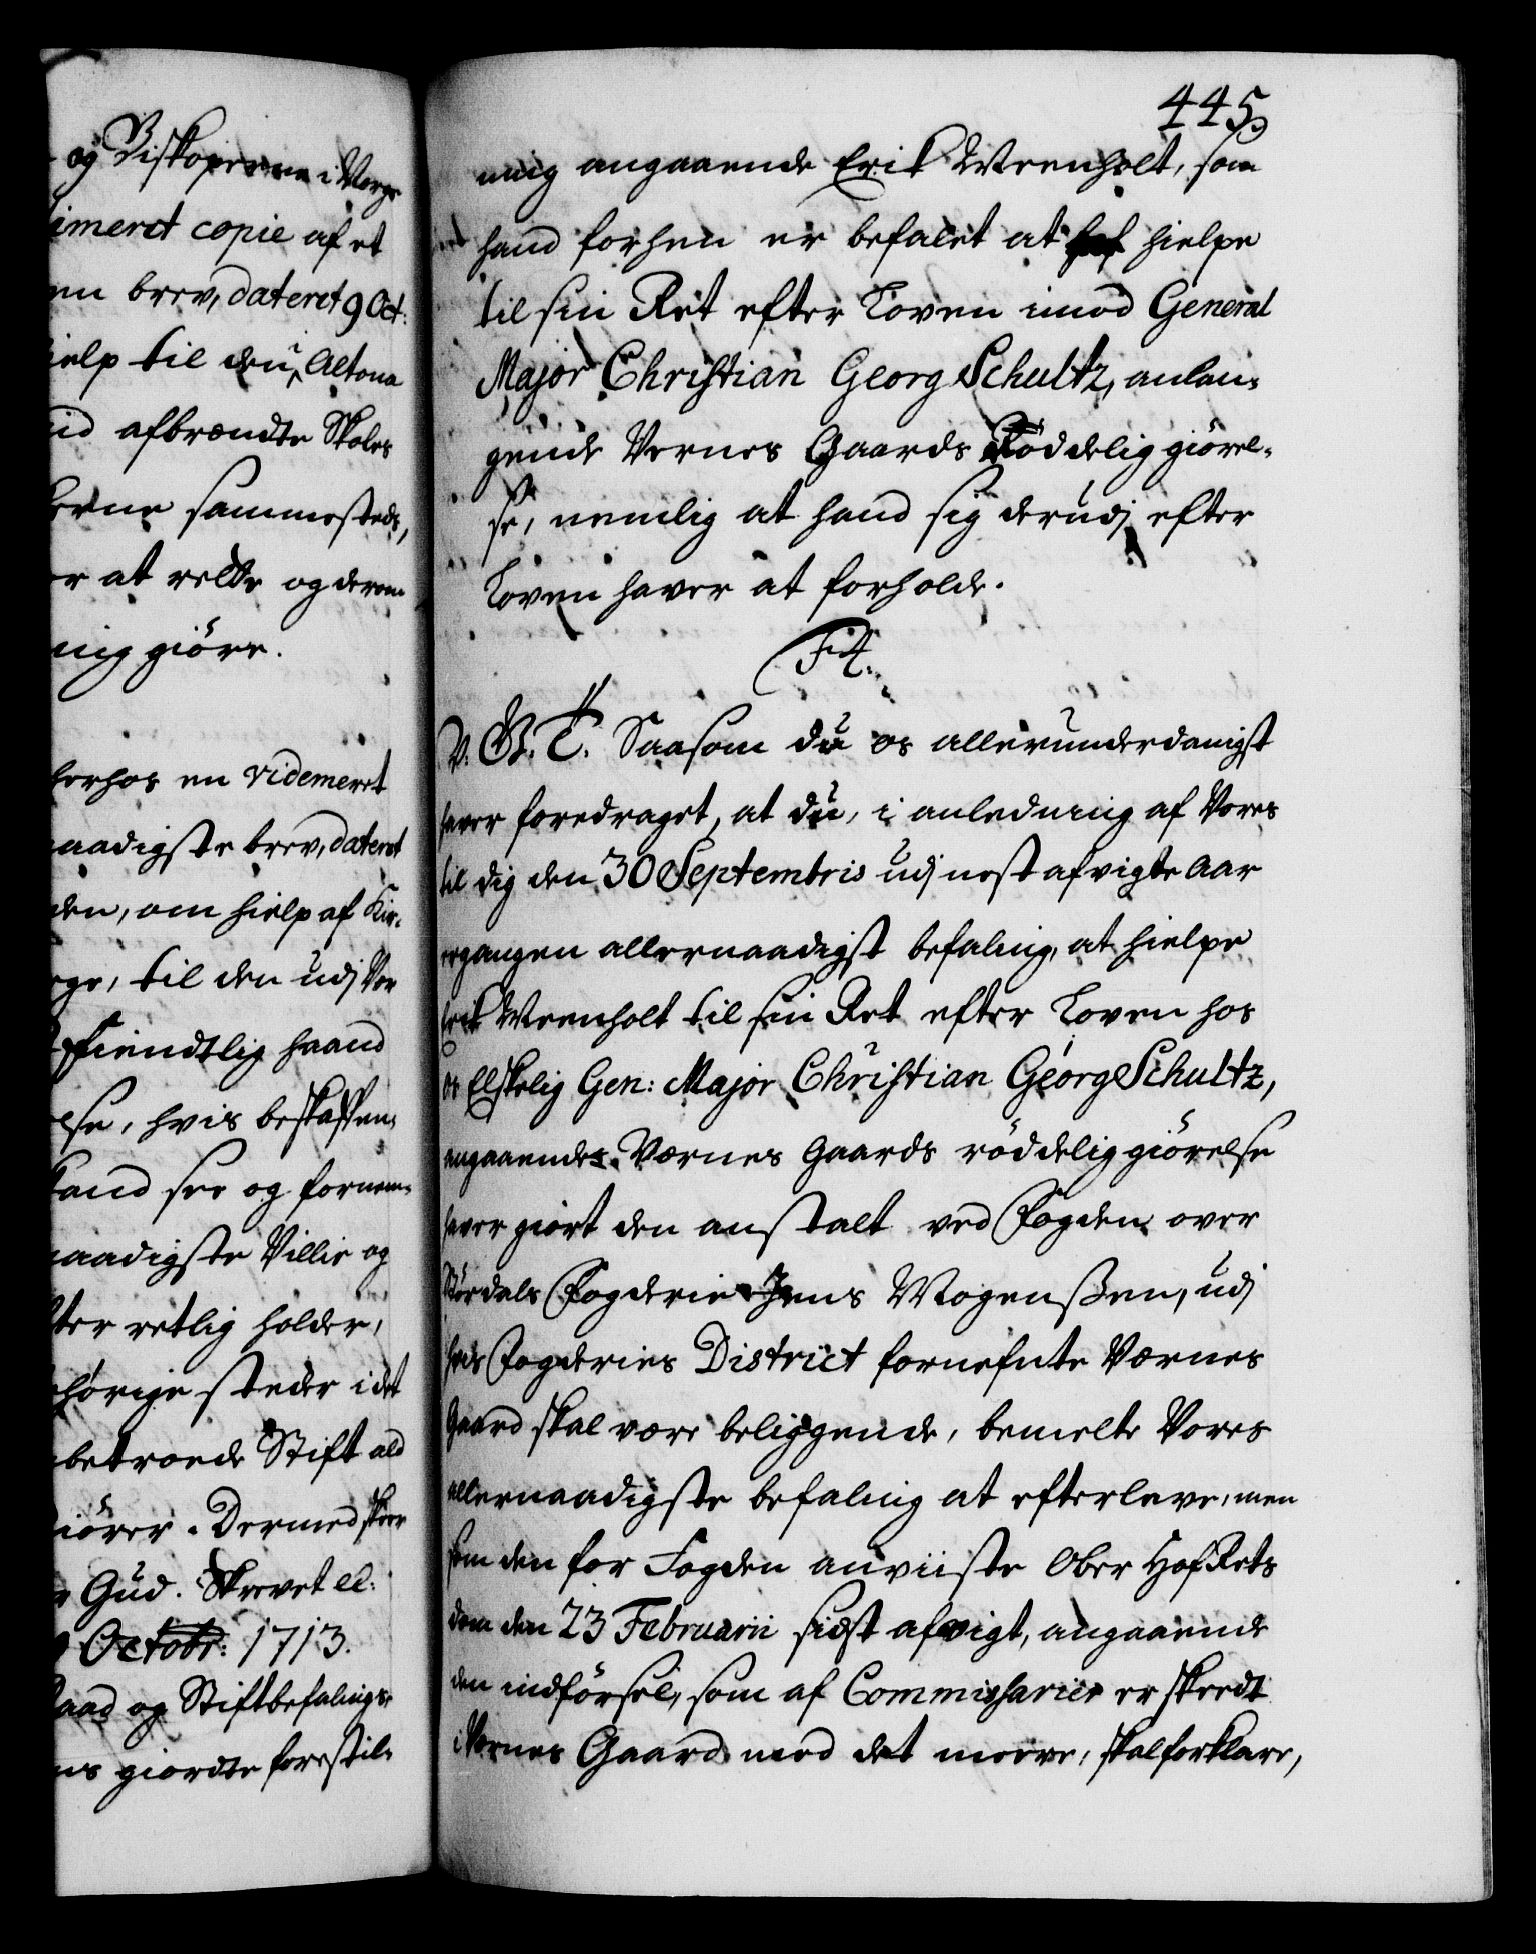 og Biskoperne i Norge
imeret copie af et
en brev, dateret 9 Oct:
ielp til den i Altona
id afbrændte Skoles
erne sammesteds,
er at rette og derom
nig giöre.
forhos en videmeret
aadigste brev, dateret
den, om hielp af Kir-
rge, til den udj Vor
fiendtlig haand
lse, hvis beskaffen-
kand see og fornem-
aadigste Villie og
ter retlig holder,
hörige steder i det
betroede Stift ald
iörer. Dermed skeer
Gud. Skrevet el:
9 Octobr: 1713.
Raad og Stiftbefalings-
ns giordte forestil-
445
ning angaaende Erik Weenholt, som
hand forhen er befalet at hielpe
til sin Ret efter Loven imod General
Major Christian Georg Schultz, anlan-
gende Vernes Gaards Röddeliggiörel-
se, nemlig at hand sig derudj efter
Loven haver at forholde.
F 4.
V. G. T. Saasom du os allerunderdanigst
haver foredraget, at du, i anledning af Vores
til dig den 30 Septembris udj nest afvigte Aar
ergangen allernaadigst befaling, at hielpe
Erik Weenholt til sin Ret efter Loven hos
os Elskelig Gen: Major Christian Georg Schultz,
angaaendes Værnes Gaards röddeliggiörelse
haver giort den anstalt ved Fogden over
Stördals Fogderie Jens Mogenßen, udj
hvis Fogderies District fornefnte Værnes
Gaard skal være beliggende, bemelte Vores
allernaadigste befaling at efterleve, men
som den for Fogden anviiste Ober Hof Rets
dom den 23 Februarii sidst afvigt, angaaende
den indförsel, som af Commissarier er skeedt
i Vernes Gaard med det meere, skal forklare,